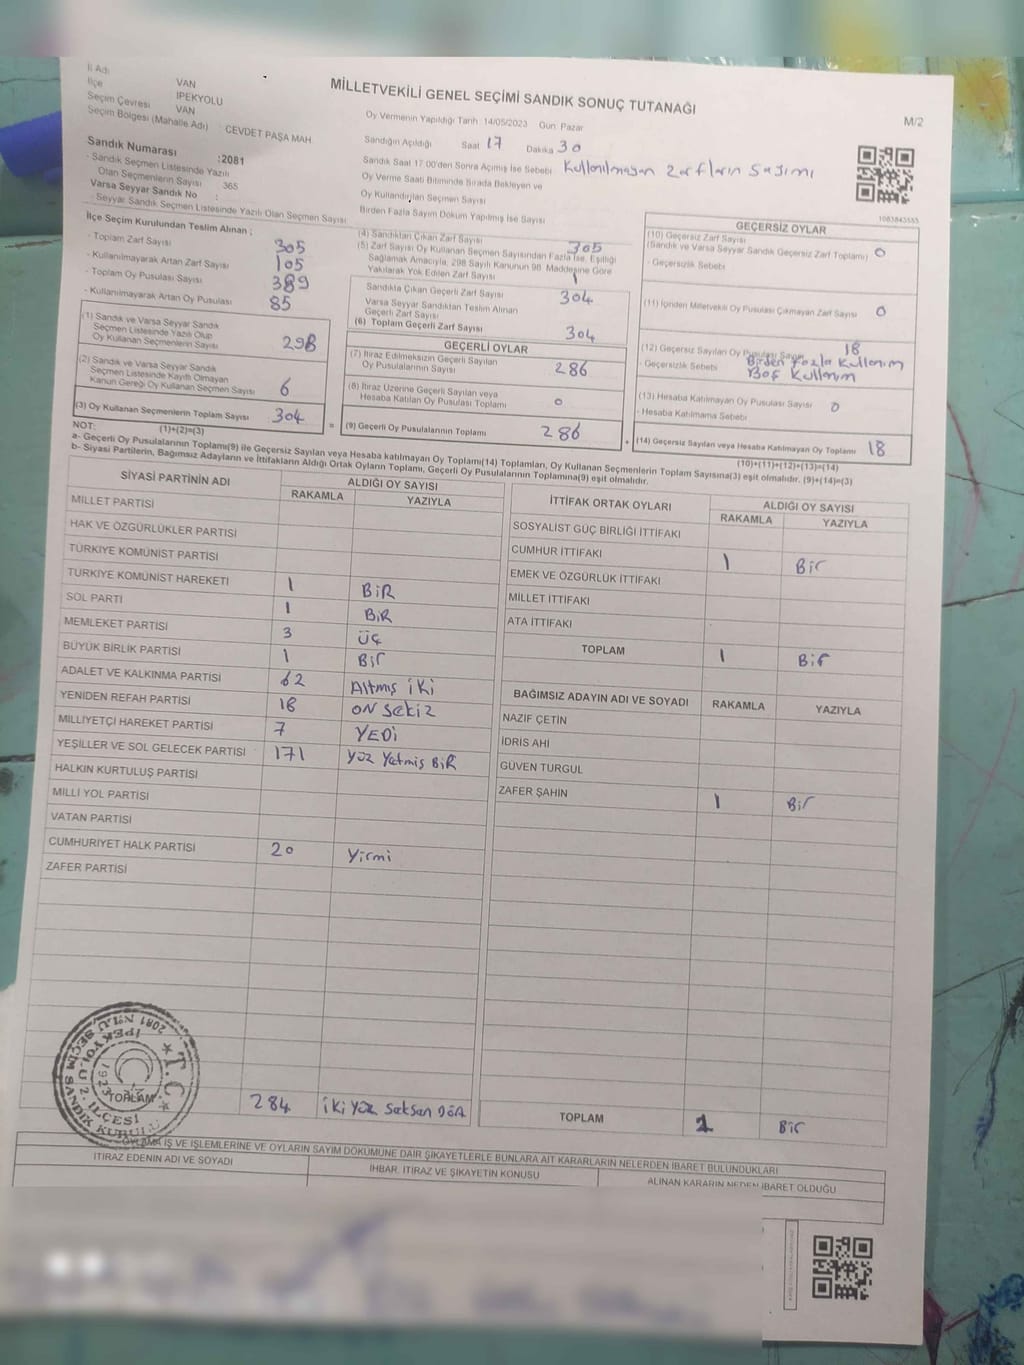 MİLLETVEKİLİ GENEL SEÇİMİ SANDIK SONUÇ TUTANAĞI
M/2
İl Adı
İlçe VAN
Seçim Çevresi IPEKYOLU
Seçim Bölgesi (Mahalle Adı) VAN
: CEVDET PAŞA MAH.
Sandık Numarası :2081
- Sandık Seçmen Listesinde Yazılı
Olan Seçmenlerin Sayısı 365
Varsa Seyyar Sandık No :
- Seyyar Sandık Seçmen Listesinde Yazılı Olan Seçmen Sayısı
Oy Vermenin Yapıldığı Tarih 14/05/2023 Gün: Pazar
Sandığın Açıldığı Saat 17 Dakika 30
Sandık Saat 17:00'den Sonra Açılmış İse Sebebi Kullanılmayan Zarfların Sayımı
Oy Verme Saati Bitiminde Sırada Bekleyen ve
Oy Kullandırılan Seçmen Sayısı
Birden Fazla Sayım Döküm Yapılmış İse Sayısı
1083843555
İlçe Seçim Kurulundan Teslim Alınan ;
- Toplam Zarf Sayısı 305
- Kullanılmayarak Artan Zarf Sayısı 105
- Toplam Oy Pusulası Sayısı 389
- Kullanılmayarak Artan Oy Pusulası 85
(1) Sandık ve Varsa Seyyar Sandık
Seçmen Listesinde Yazılı Olup
Oy Kullanan Seçmenlerin Sayısı 298
(2) Sandık ve Varsa Seyyar Sandık
Seçmen Listesinde Kayıtlı Olmayan
Kanun Gereği Oy Kullanan Seçmen Sayısı 6
(3) Oy Kullanan Seçmenlerin Toplam Sayısı 304
(1)+(2)=(3)
(4) Sandıktan Çıkan Zarf Sayısı 305
(5) Zarf Sayısı Oy Kullanan Seçmen Sayısından Fazla İse, Eşitliği
Sağlamak Amacıyla, 298 Sayılı Kanunun 98. Maddesine Göre
Yakılarak Yok Edilen Zarf Sayısı 1
Sandıkta Çıkan Geçerli Zarf Sayısı 304
Varsa Seyyar Sandıktan Teslim Alınan
Geçerli Zarf Sayısı
(6) Toplam Geçerli Zarf Sayısı 304
GEÇERLİ OYLAR
(7) İtiraz Edilmeksizin Geçerli Sayılan
Oy Pusulalarının Sayısı 286
(8) İtiraz Üzerine Geçerli Sayılan veya
Hesaba Katılan Oy Pusulası Toplamı 0
= (9) Geçerli Oy Pusulalarının Toplamı 286
GEÇERSİZ OYLAR
(10) Geçersiz Zarf Sayısı
(Sandık ve Varsa Seyyar Sandık Geçersiz Zarf Toplamı) 0
- Geçersizlik Sebebi
(11) İçinden Milletvekili Oy Pusulası Çıkmayan Zarf Sayısı 0
(12) Geçersiz Sayılan Oy Pusulası Sayısı 18
- Geçersizlik Sebebi Birden Fazla Kullanım
Boş Kullanım
(13) Hesaba Katılmayan Oy Pusulası Sayısı 0
- Hesaba Katılmama Sebebi
+ (14) Geçersiz Sayılan veya Hesaba Katılmayan Oy Toplamı 18
(10)+(11)+(12)+(13)=(14)
NOT:
a- Geçerli Oy Pusulalarının Toplamı(9) ile Geçersiz Sayılan veya Hesaba katılmayan Oy Toplamı(14) Toplamları, Oy Kullanan Seçmenlerin Toplam Sayısına(3) eşit olmalıdır. (9)+(14)=(3)
b- Siyasi Partilerin, Bağımsız Adayların ve İttifakların Aldığı Ortak Oyların Toplamı, Geçerli Oy Pusulalarının Toplamına(9) eşit olmalıdır.
SİYASİ PARTİNİN ADI ALDIĞI OY SAYISI
RAKAMLA YAZIYLA
MİLLET PARTİSİ
HAK VE ÖZGÜRLÜKLER PARTİSİ
TÜRKİYE KOMÜNİST PARTİSİ
TÜRKİYE KOMÜNİST HAREKETİ 1 BİR
SOL PARTİ 1 BİR
MEMLEKET PARTİSİ 3 ÜÇ
BÜYÜK BİRLİK PARTİSİ 1 Bir
ADALET VE KALKINMA PARTİSİ 62 Altmış iki
YENİDEN REFAH PARTİSİ 18 ON Sekiz
MİLLİYETÇİ HAREKET PARTİSİ 7 YEDİ
YEŞİLLER VE SOL GELECEK PARTİSİ 171 Yüz Yetmiş BİR
HALKIN KURTULUŞ PARTİSİ
MİLLİ YOL PARTİSİ
VATAN PARTİSİ
CUMHURİYET HALK PARTİSİ 20 Yirmi
ZAFER PARTİSİ
TOPLAM 284 iki yüz Seksen Dört
İTTİFAK ORTAK OYLARI ALDIĞI OY SAYISI
RAKAMLA YAZIYLA
SOSYALİST GÜÇ BİRLİĞİ İTTİFAKI
CUMHUR İTTİFAKI 1 Bir
EMEK VE ÖZGÜRLÜK İTTİFAKI
MİLLET İTTİFAKI
ATA İTTİFAKI
TOPLAM 1 Bir
BAĞIMSIZ ADAYIN ADI VE SOYADI RAKAMLA YAZIYLA
NAZİF ÇETİN
İDRİS AHİ
GÜVEN TURGUL
ZAFER ŞAHİN 1 Bir
TOPLAM 1 Bir
T.C.
İPEKYOLU 2. İLÇESİ
2081 NO.LU SEÇİM SANDIK KURULU
OYLAMA İŞ VE İŞLEMLERİNE VE OYLARIN SAYIM DÖKÜMÜNE DAİR ŞİKAYETLERLE BUNLARA AİT KARARLARIN NELERDEN İBARET BULUNDUKLARI
İTİRAZ EDENİN ADI VE SOYADI
İHBAR, İTİRAZ VE ŞİKAYETİN KONUSU
ALINAN KARARIN NEDEN İBARET OLDUĞU